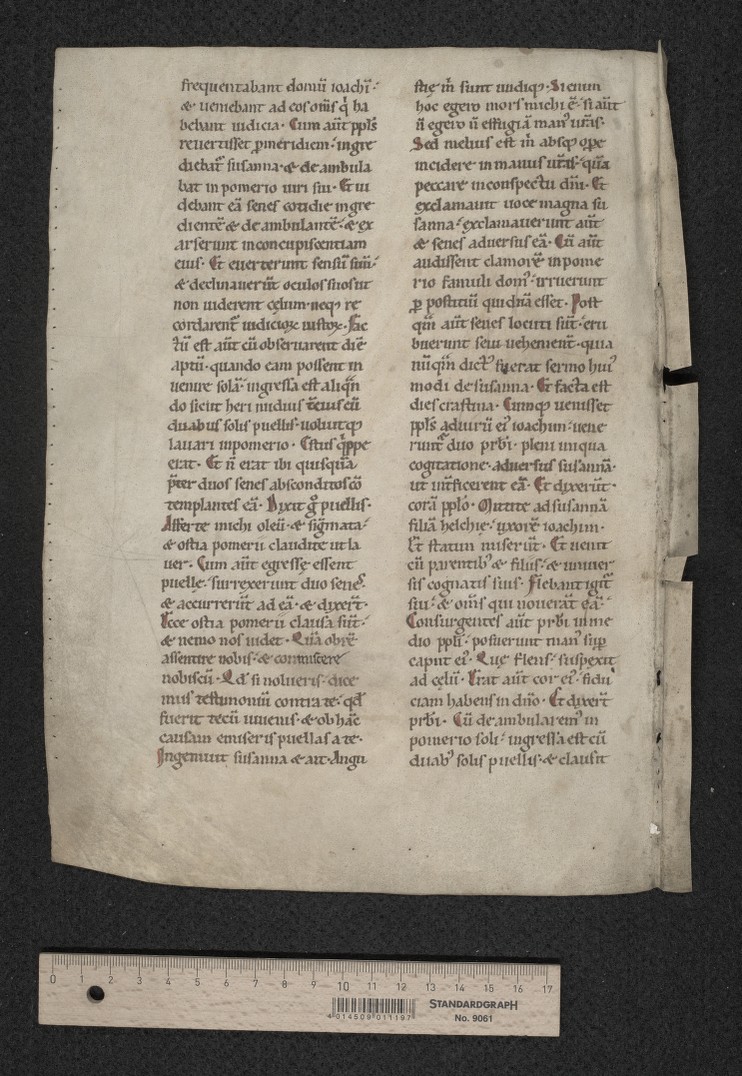 frequentabant domū ioachī·
& ueniebant ad eos om̄s q̇ ha
bebant iudicia· Cum aūt ppl̄s
reuertisset p̱ meridiem· ingre
diebat᷑ susanna· & deambula
bat in pomerio uiri sui· Et ui
debant eā senes cotidie ingre
dientē & deambulantē· & ex
arserunt in concupiscentiam
eius· Et euerterunt sensū suū·
& declinauer̄t oculos suos ut
non uiderent cęlum· neqꝫ re
cordarent᷑ iudicioꝝ iustoꝝ· Fac
tū est aūt cū obseruarent diē
aptū· quando eam possent in
uenire solā· ingressa est aliqn̄
do sicut heri nudius tercius cū
duabus solis puellis· uoluitqꝫ
lauari in pomerio· Estus q̇ppe
erat· Et n̄ erat ibi quisquā
p̄ter duos senes absconditos cō
templantes eā· Dixit g̊ puellis·
Afferte michi oleū· & sigmata·
& ostia pomerii claudite ut la
uer· Cum aūt egressę essent
puellę· surrexerunt duo senes·
& accurrer̄t ad eā· & dixer̄t·
Ecce ostia pomerii clausa sūt·
& nemo nos uidet· Quā obrē
assentire nobis· & commiscere
nobiscū· Qd̄ si nolueris· dice
mus testimoniū contra te· qd̄
fuerit tecū iuuenis· & ob hāc
causam emiseris puellas a te·
Ingemuit susanna & ait· Angu
stię m̄ sunt undiqꝫ· Si enim
hoc egero mors michi ē· si aūt
n̄ egero n̄ effugiā manꝰ ur̄as·
Sed melius est m̄ absqꝫ opere
incidere in manus ur̄as· quā
peccare in conspectu dn̄i· Et
exclamauit uoce magna su
sanna· exclamauerunt aūt
& senes aduersus eā· Cū aūt
audissent clamorē in pome
rio famuli domꝰ· irruerunt
ꝑ posticū quidnā esset· Post
qm̄ aūt senes locuti sūt· eru
buerunt serui uehement᷑· quia
nūqm̄ dictꝰ fuerat sermo huiꝰ
modi de susanna· Et facta est
dies crastina· Cumqꝫ uenisset
ppl̄s ad uirū eiꝰ ioachim· uene
runt & duo prb̄i· pleni iniqua
cogitatione· aduersus susannā·
ut int̄ficerent eā· Et dixer̄t·
corā pplo· Mittite ad susannā
filiā helchie· uxorē ioachim·
Et statim miser̄t· Et uenit
cū parentibꝰ & filiis· & uniuer
sis cognatis suis· Flebant igit᷑
sui· & om̄s qui nouerāt eā·
Consurgentes aūt prb̄i in me
dio ppl̄i· posuerunt manꝰ suꝑ
caput eiꝰ· Quę flens· suspexit
ad cęlū· Erat aūt cor eiꝰ· fidu
ciam habens in dn̄o· Et dixer̄t
prb̄i· Cū deambularemꝰ in
pomerio soli· ingressa est cū
duabꝰ solis puellis· & clausit
0 1 2 3 4 5 6 7 8 9 10 11 12 13 14 15 16 17
4 014509 011197
STANDARDGRAPH
No. 9061